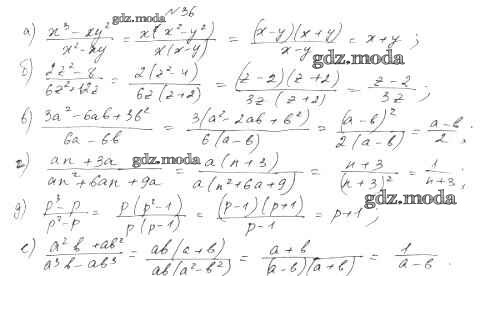 №36
а) x³ - xy² / x² - xy = x(x² - y²) / x(x - y) = (x-y)(x+y) / x-y = x+y;
б) 2z² - 8 / 6z² + 12z = 2(z² - 4) / 6z(z+2) = (z-2)(z+2) / 3z(z+2) = z-2 / 3z;
в) 3a² - 6ab + 3b² / 6a - 6b = 3(a² - 2ab + b²) / 6(a-b) = (a-b)² / 2(a-b) = a-b / 2;
г) an + 3a / an² + 6an + 9a = a(n+3) / a(n² + 6a + 9) = n+3 / (n+3)² = 1 / n+3;
д) p³ - p / p² - p = p(p² - 1) / p(p-1) = (p-1)(p+1) / p-1 = p+1;
е) a²b + ab² / a³b - ab³ = ab(a+b) / ab(a² - b²) = a+b / (a-b)(a+b) = 1 / a-b.
gdz.moda
gdz.moda
gdz.moda
gdz.moda